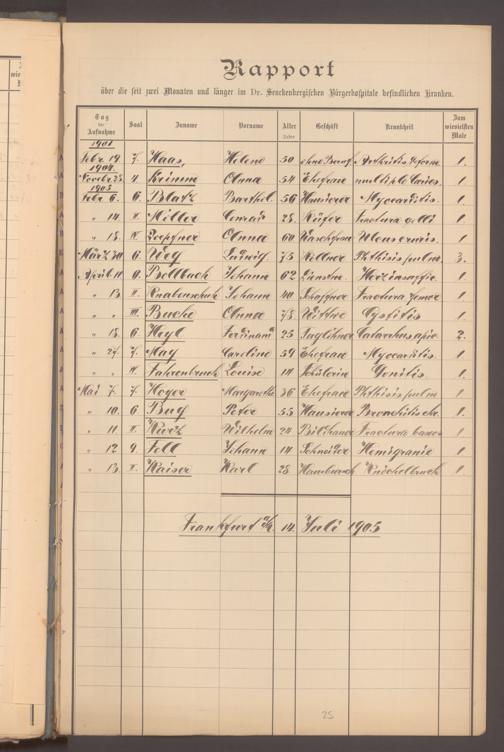 Rapport
über die seit zwei Monaten und länger im Dr. Senckenbergischen Bürgerhospitale befindlichen Kranken.
Tag der Aufnahme Saal Zuname Vorname Alter Jahre Geschäft Krankheit Zum wievielsten Male
1901
Febr. 19. 7. Haas, Helene 50 ohne Beruf Arthritis deform 1.
1904
Novbr. 4 Anna 54 Ehefrau multiple Caries 1.
1905
Febr. 6. 6. Blatz Barthel. 56 Hausierer Myocarditis 1.
" 14 Müller Conrad 28. Küfer Fractura 1
" 18. Zoepfner Anna 60 Waschfrau Ulcus cruris 1.
März 30 6. Weg Ludwig 75 Kellner Phthisis pulm 3.
April 11 9. Bellbach Johann 62 Dienstm. Herzinsuffic. 1.
" 13 Knabenschuh Johann 40 Schaffner Fractura femor 1
" " III. Buche Anna 78. Wittwe Cystitis 1
" 18. 6 Heyl Ferdinand 25 Taglöhner Catarrhus apic. 2.
" 27. 7. May Caroline 59 Ehefrau Myocarditis 1
" " IV. Fahrenbruch Louise 14 Schülerin Gonitis 1.
Mai 7. 7. Hoyer Margarethe 36 Ehefrau Phthisis pulm 1
" 10. 6 Bug Peter 55 Hausierer Bronchitis chr. 1.
" 11 Würz Wilhelm 24 Bildhauer Fractura 1
" 12 9. Fell Johann 14 Schneider Hemigranie 1
" 13 Kaiser Karl 28 Hausbursch Knöchelbruch 1
Frankfurt a/M. 14. Juli 1905
25